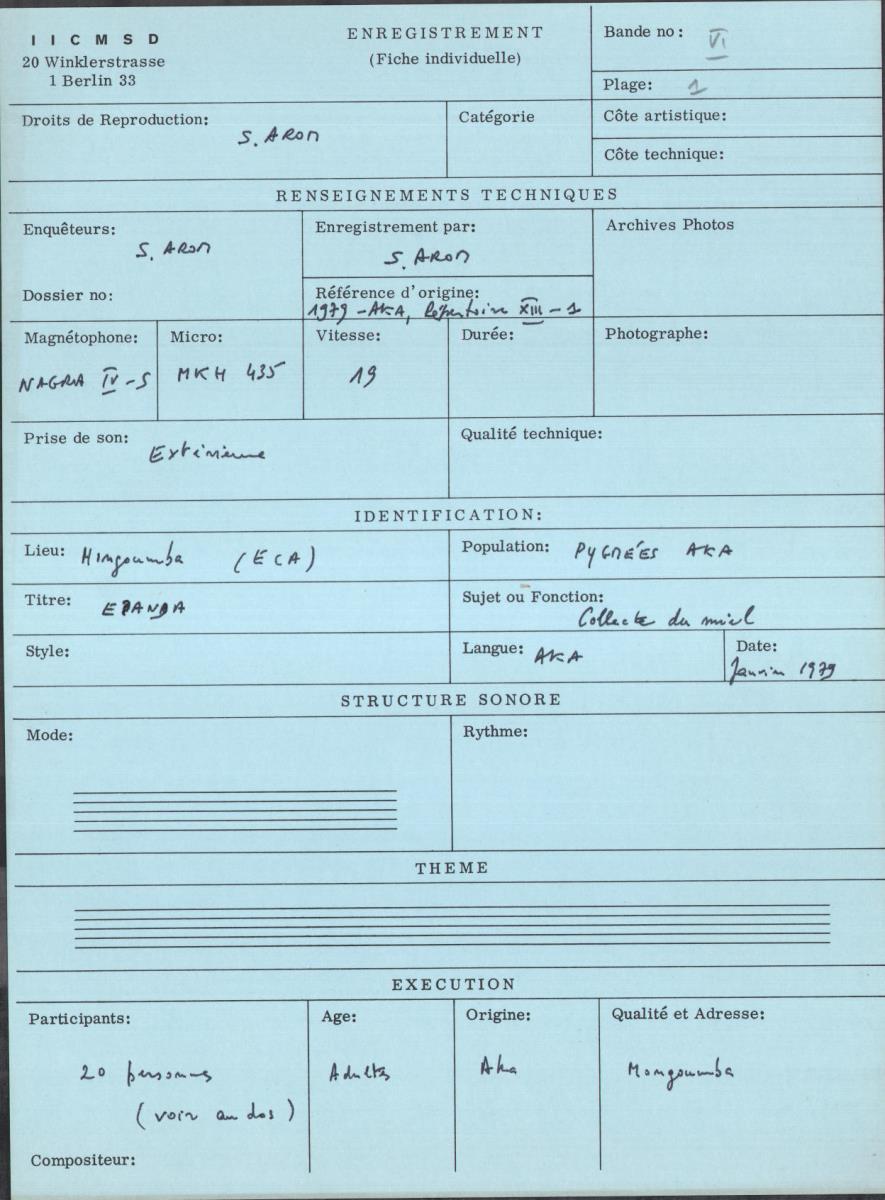 I I C M S D
20 Winklerstrasse
1 Berlin 33
ENREGISTREMENT
(Fiche individuelle)
Bande no: VI
Plage: 1
Droits de Reproduction:
S. AROM
Catégorie
Côte artistique:
Côte technique:
RENSEIGNEMENTS TECHNIQUES
Enquêteurs:
S. AROM
Dossier no:
Enregistrement par:
S. AROM
Référence d'origine:
1979 - AKA, Répertoire XIII - 1
Archives Photos
Magnétophone:
NAGRA IV-S
Micro:
MKH 435
Vitesse:
19
Durée:
Photographe:
Prise de son:
Extérieure
Qualité technique:
IDENTIFICATION:
Lieu: Mongoumba (ECA)
Population: PYGMÉES AKA
Titre:
Sujet ou Fonction:
Collecte du miel
Style:
Langue: AKA
Date:
Janvier 1979
STRUCTURE SONORE
Mode:
Rythme:
THEME
EXECUTION
Participants:
20 personnes
(voir au dos)
Age:
Adultes
Origine:
Aka
Qualité et Adresse:
Mongoumba
Compositeur: